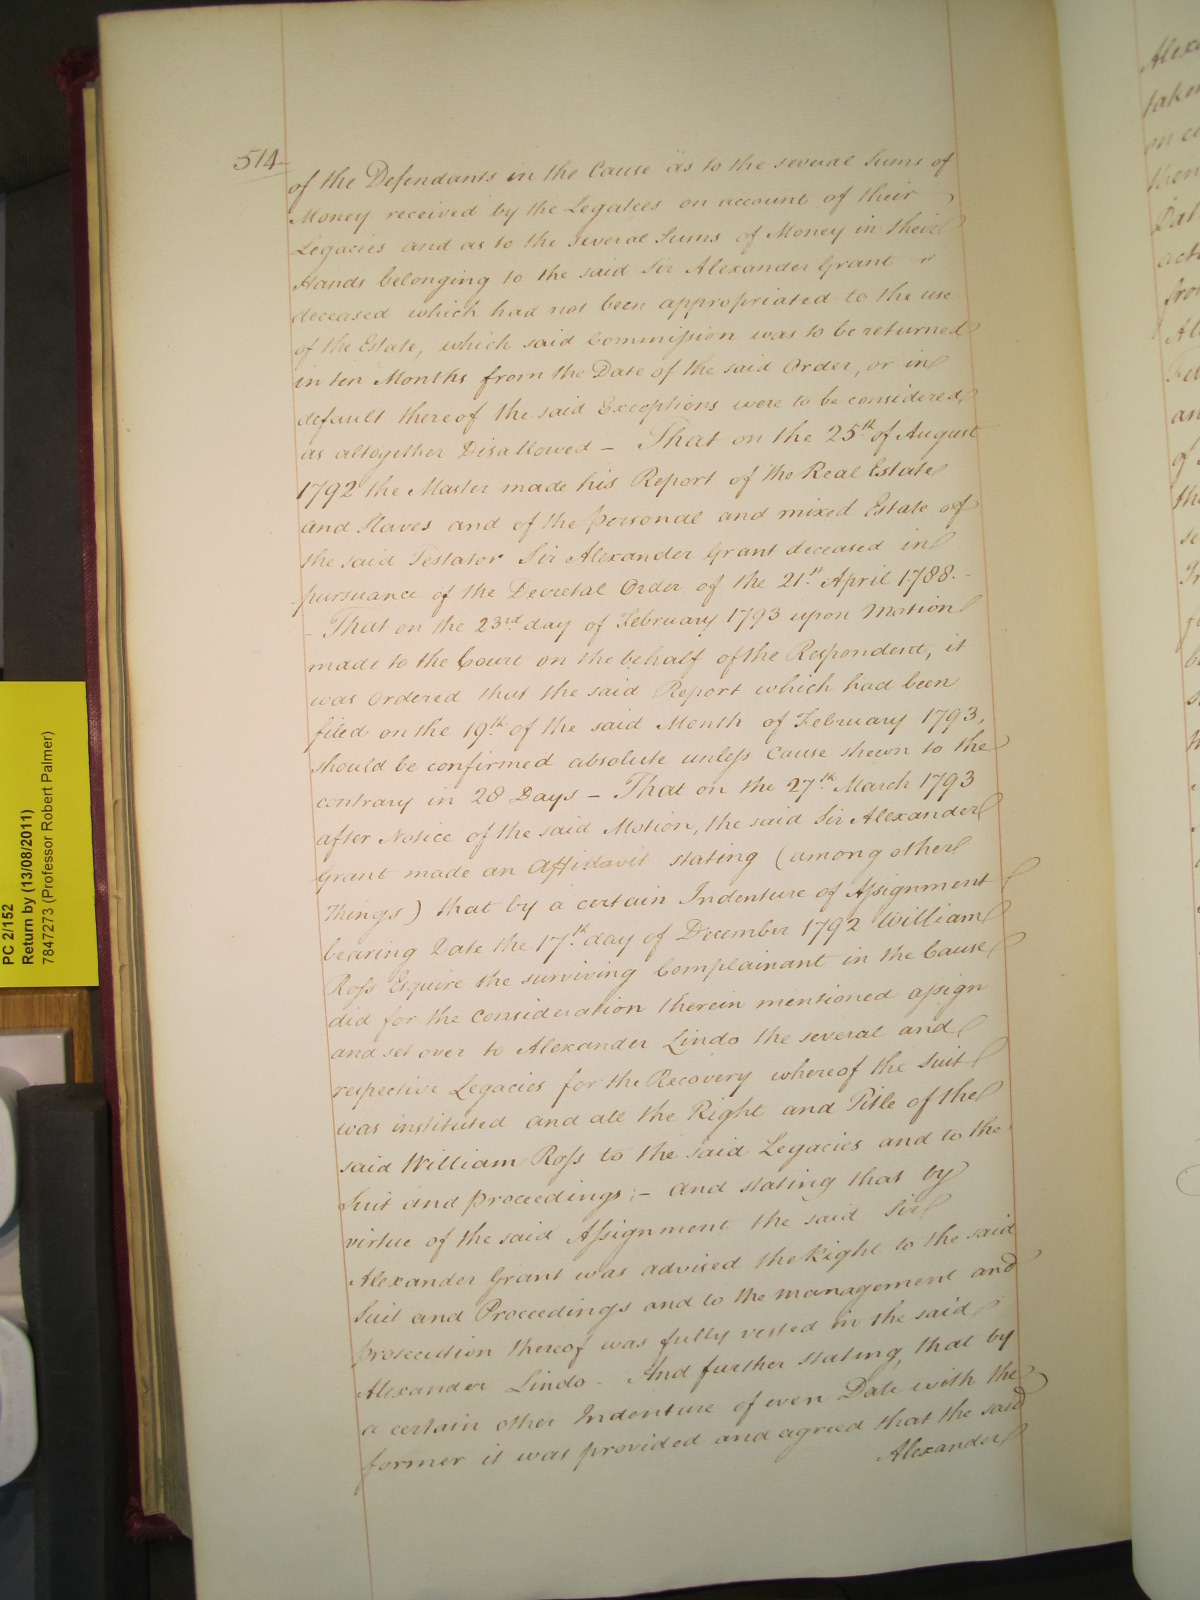 514
of the Defendants in the Cause as to the several Sums of
Money received by the Legatees on account of their
Legacies and as to the several Sums of Money in their
Hands belonging to the said Sir Alexander Grant
deceased which had not been appropriated to the use
of the Estate, which said Commission was to be returned
in ten Months from the Date of the said Order, or in
default thereof the said Exceptions were to be considered
as altogether Disallowed – That on the 25th of August
1792 the Master made his Report of the Real Estate
and Slaves and of the personal and mixed Estate of
the said Testator Sir Alexander Grant deceased in
pursuance of the Decretal Order of the 21st April 1788. -
- That on the 23rd day of February 1793 upon Motion
made to the Court on the behalf of the Respondent, it
was Ordered that the said Report which had been
filed on the 19th of the said Month of February 1793,
should be confirmed absolute unless Cause shewn to the
contrary in 28 Days – That on the 27th March 1793
after Notice of the said Motion, the said Sir Alexander
Grant made an Affidavit stating (among other
things) that by a certain Indenture of Assignment
bearing Date the 17th day of December 1792 William
Ross Esquire the surviving Complainant in the Cause
did for the Consideration therein mentioned assign
and set over to Alexander Lindo the several and
respective Legacies for the Recovery whereof the Suit
was instituted and all the Right and Title of the
said William Ross to the said Legacies and to the
Suit and Proceedings; – and stating that by
virtue of the said Assignment the said Sir
Alexander Grant was advised the Right to the said
Suit and Proceedings and to the management and
prosecution thereof was fully vested in the said
Alexander Lindo - And further stating, that by
a certain other Indenture of even Date with the
former it was provided and agreed that the said
Alexander
PC 2/152
Return by (13/08/2011)
7847273 (Professor Robert Palmer)